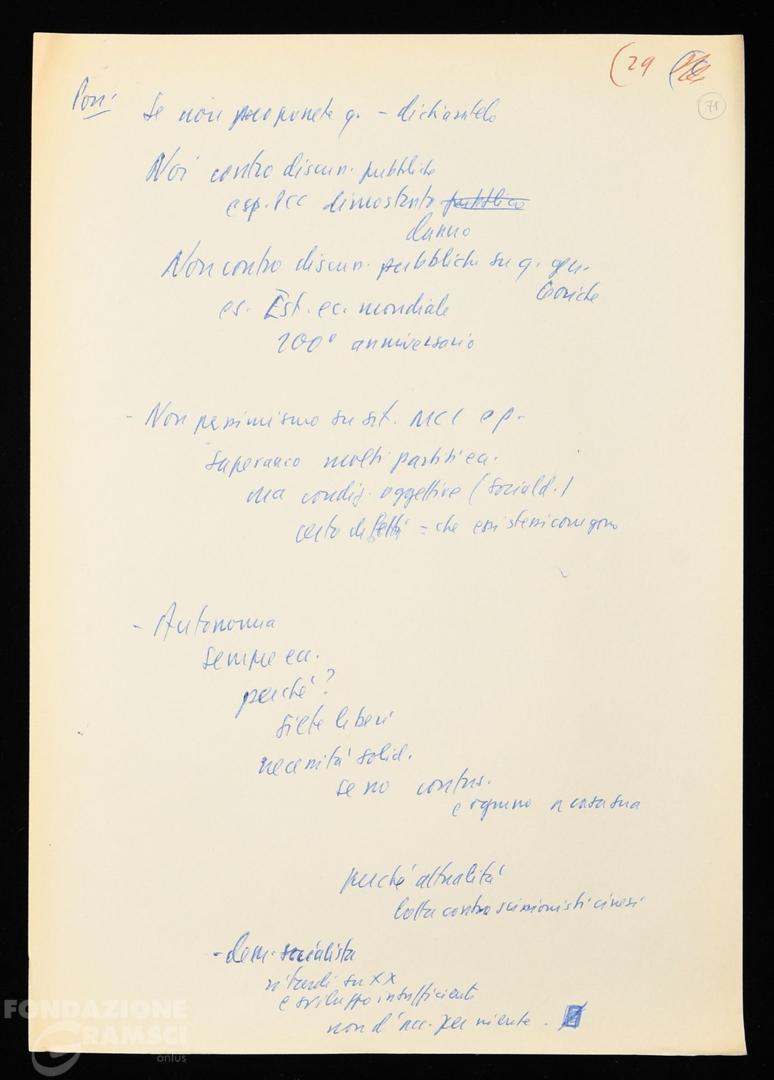 (29
71
Pon:
Se non proponete q. - dichiaratelo
Noi contro discuss. pubbliche
esp. PCC dimostrato pubblico
danno
Non contro discuss. pubbliche su q. gen.
teoriche
es. Est. ec. mondiale
100° anniversario
- Non pessimismo su sit. MCI e p.
superano molti partiti ecc.
ma condiz. oggettive (sociald.)
certo difetti = che essi stessi correggono
- Autonomia
sempre ecc.
perché?
siete liberi
necessità solid.
se no confus.
e ognuno a casa sua
perché attualità
lotta contro scissionisti cinesi
- dem. socialista
ritardi su XX
e sviluppo insufficiente
non d'acc. per niente.
FONDAZIONE
GRAMSCI
onlus